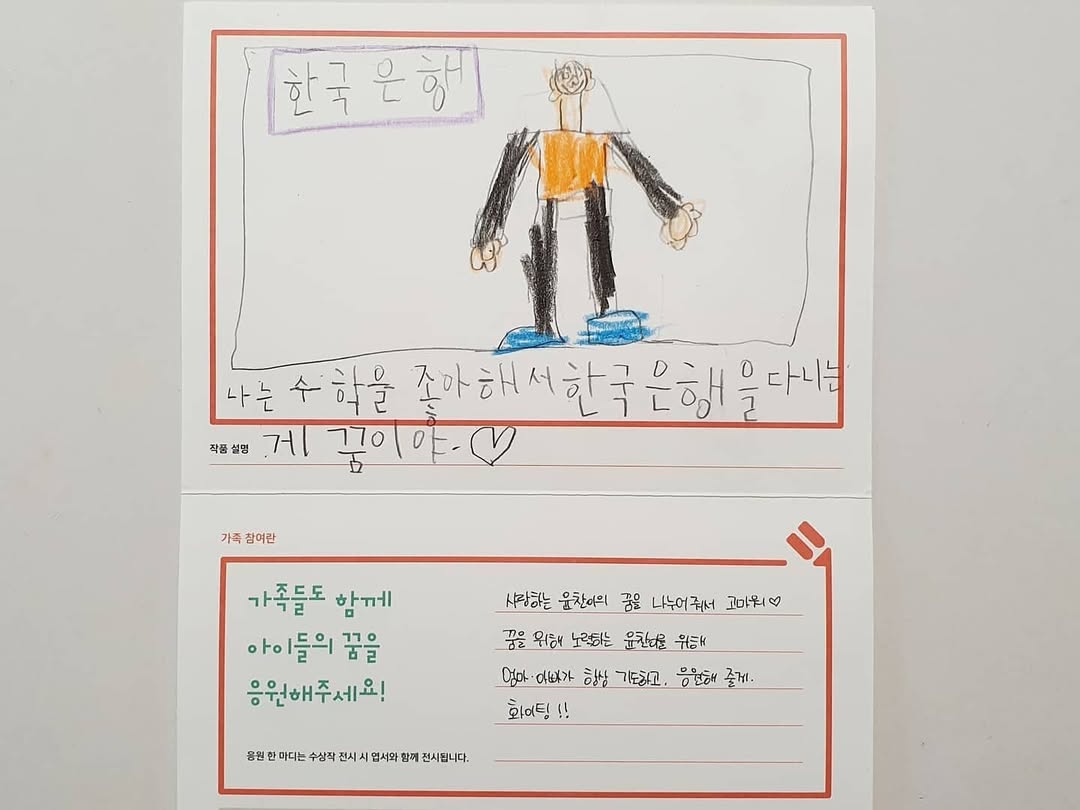 한국은행
나는 수학을 좋아해서 한국은행을 다니는
작품 설명 게 꿈이야. ♡
가족 참여란
가족들도 함께
아이들의 꿈을
응원해주세요!
사랑하는 윤찬이의 꿈을 나누어줘서 고마워♡
꿈을 위해 노력하는 윤찬이를 위해
엄마·아빠가 항상 기도하고, 응원해 줄게.
화이팅!!
응원 한 마디는 수상작 전시 시 엽서와 함께 전시됩니다.